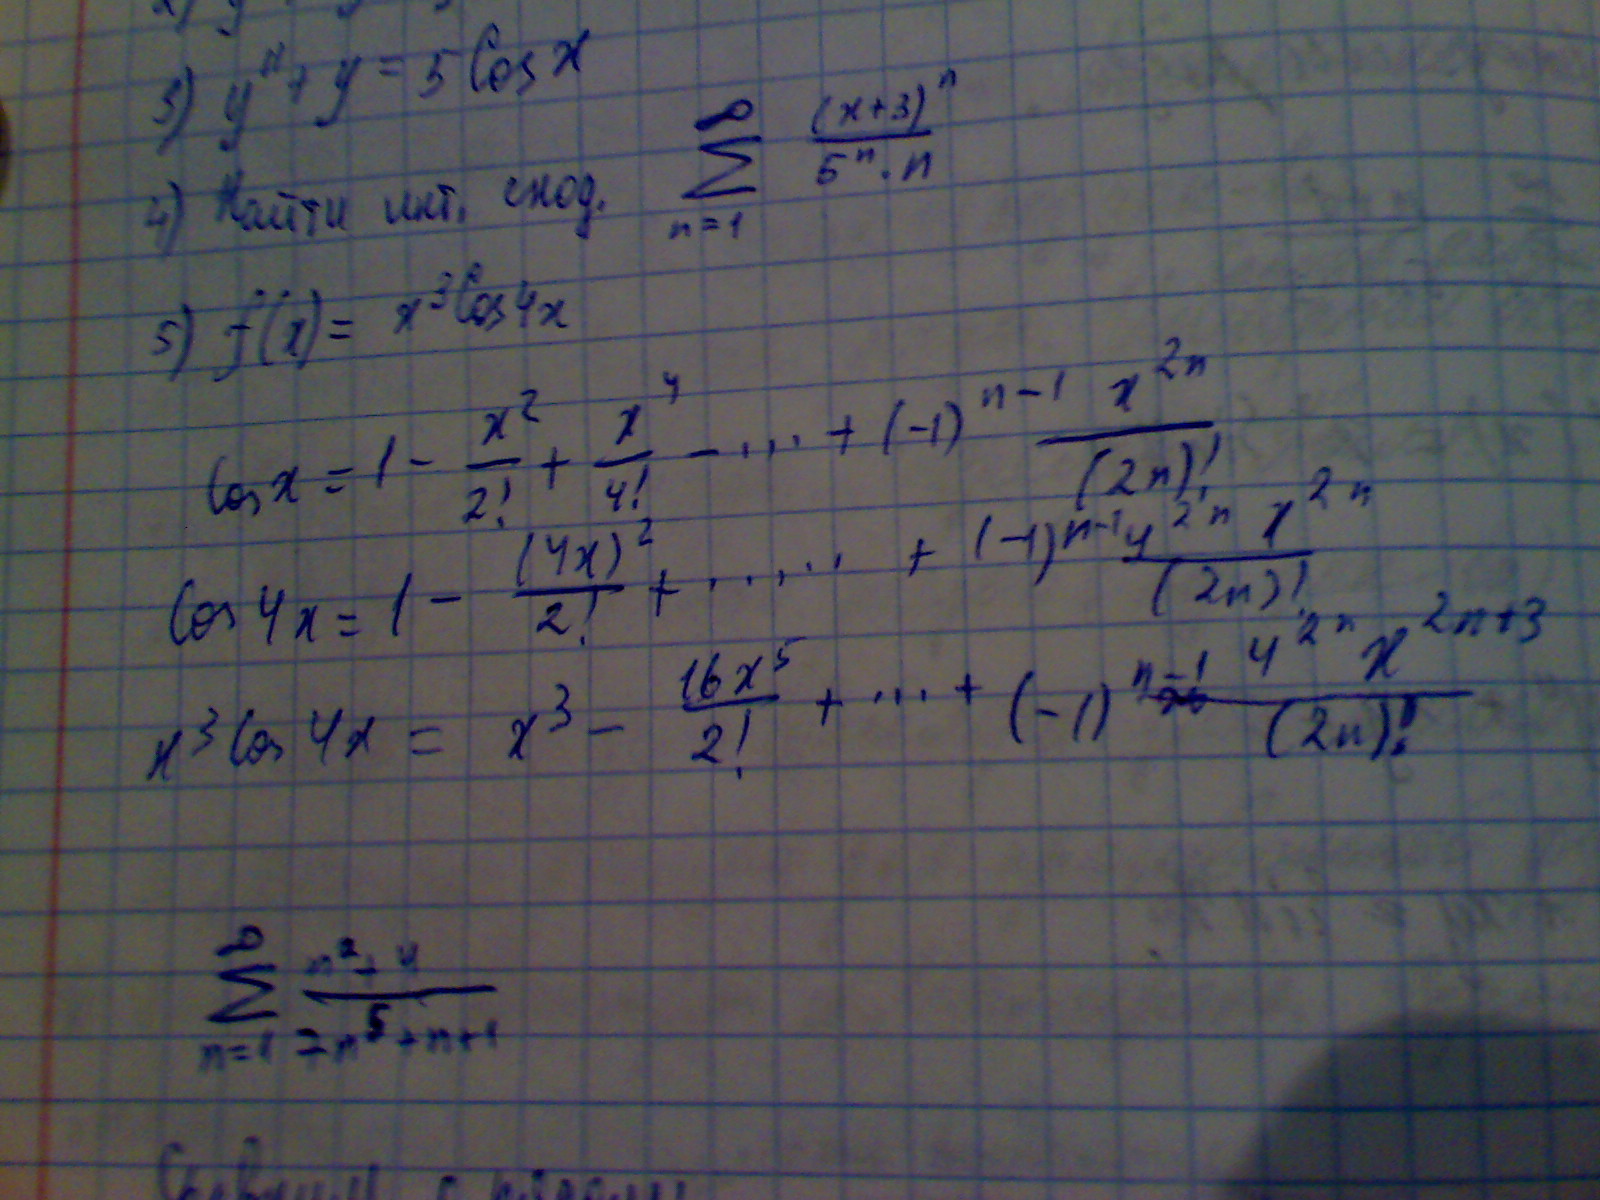 3) y'' + y = 5 Cos x
4) Найти инт. сход. ∞ ∑ n=1 (x+3)^n / 5^n · n
5) f(x) = x^3 Cos 4x
Cos x = 1 - x^2/2! + x^4/4! - ... + (-1)^(n-1) x^(2n)/(2n)!
Cos 4x = 1 - (4x)^2/2! + ..... + (-1)^(n-1) 4^(2n) x^(2n)/(2n)!
x^3 Cos 4x = x^3 - 16x^5/2! + ... + (-1)^(n-1) 4^(2n) x^(2n+3)/(2n)!
∞ ∑ n=1 n^2+4 / 7n^5+n+1
Сравним с рядом